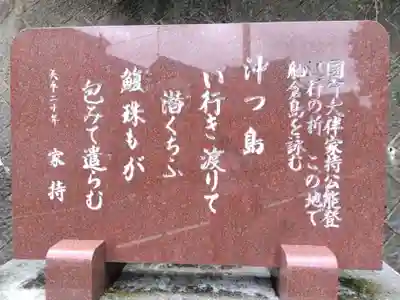 国守大伴家持公能登
巡行の折 この地で
舳倉島を詠む
沖つ島
い行き渡りて
潜くちふ
鰒珠もが
包みて遣らむ
天平二十年 家持